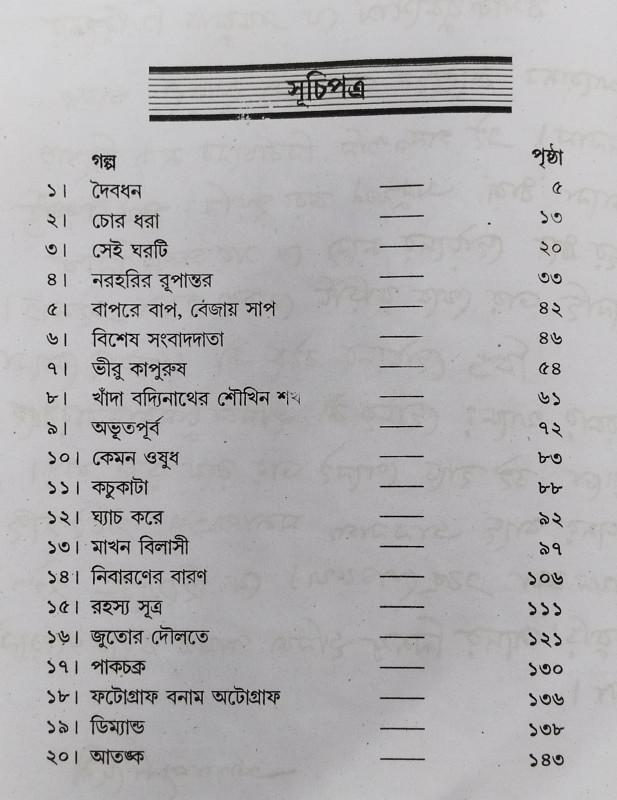 সূচিপত্র
গল্প পৃষ্ঠা
১। দৈবধন — ৫
২। চোর ধরা — ১৩
৩। সেই ঘরটি — ২০
৪। নরহরির রূপান্তর — ৩৩
৫। বাপরে বাপ, বেজায় সাপ — ৪২
৬। বিশেষ সংবাদদাতা — ৪৬
৭। ভীরু কাপুরুষ — ৫৪
৮। খাঁদা বদ্যিনাথের শৌখিন শখ — ৬১
৯। অভূতপূর্ব — ৭২
১০। কেমন ওষুধ — ৮৩
১১। কচুকাটা — ৮৮
১২। ঘ্যাচ করে — ৯২
১৩। মাখন বিলাসী — ৯৭
১৪। নিবারণের বারণ — ১০৬
১৫। রহস্য সূত্র — ১১১
১৬। জুতোর দৌলতে — ১২১
১৭। পাকচক্র — ১৩০
১৮। ফটোগ্রাফ বনাম অটোগ্রাফ — ১৩৬
১৯। ডিম্যান্ড — ১৩৮
২০। আতঙ্ক — ১৪৩